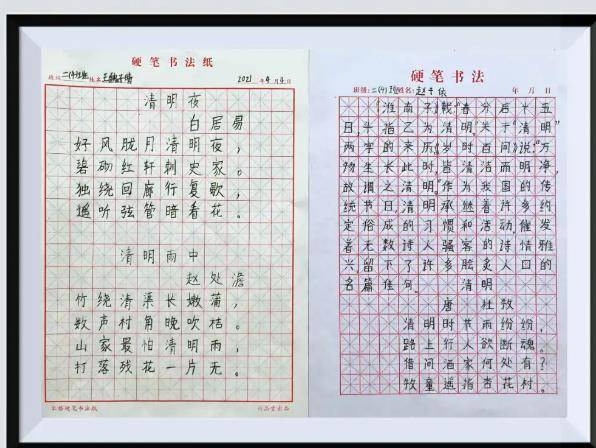 硬笔书法纸
2021年4月4日
清明夜
白居易
好风胧月清明夜,
碧砌红轩刺史家。
独绕回廊行复歇,
遥听弦管暗看花。
清明雨中
赵处澹
竹绕清渠长嫩蒲,
数声村角晚吹枯。
山家最怕清明雨,
打落残花一片无。
硬笔书法
班级:二(4)班姓名:赵子依 年 月 日
《淮南子》载:“春分后十五
日,斗指乙为清明。”关于“清明”
两字的来历,《岁时百问》说:“万
物生长此时,皆清洁而明净,
故谓之清明。”作为我国的传
统节日,清明承继着许多约
定俗成的习惯和活动,催发
着无数诗人骚客的诗情雅
兴,留下了许多脍炙人口的
名篇佳句。 清明
唐 杜牧
清明时节雨纷纷,
路上行人欲断魂。
借问酒家何处有?
牧童遥指杏花村。